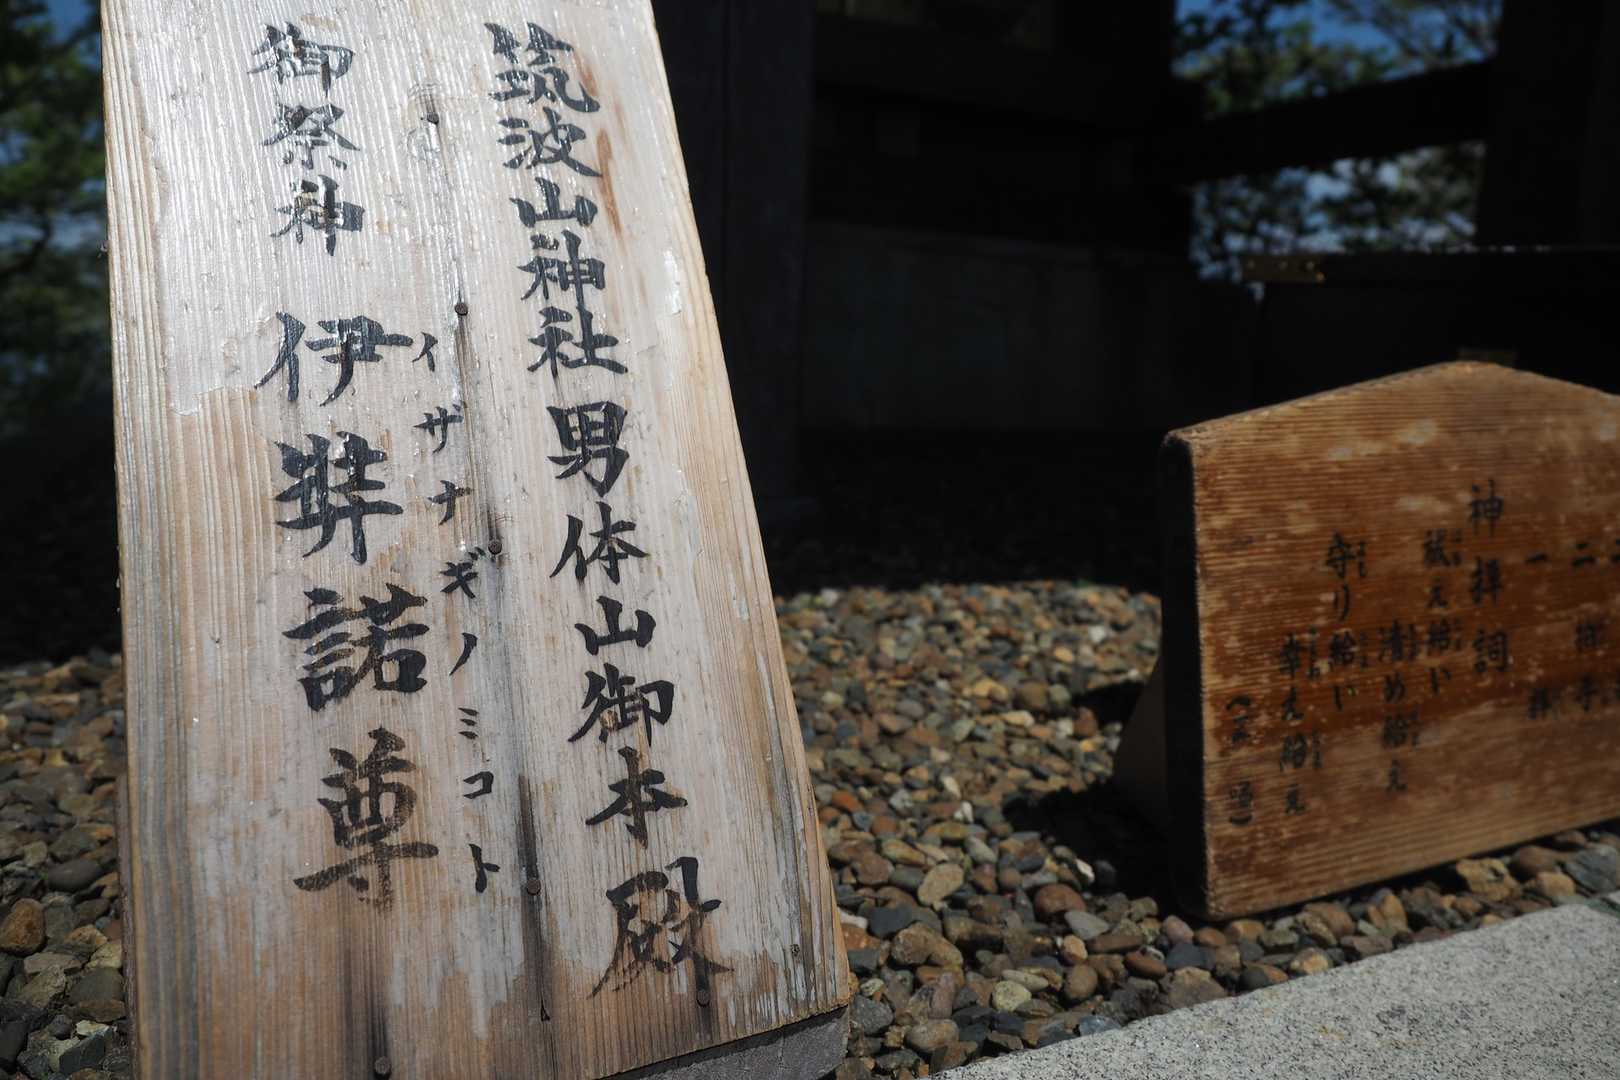 筑波山神社 男体山御本殿
イザナギノミコト
御祭神 伊弉諾尊
二
一
神拝詞
祓え給い
清め給え
守り給い
幸え給え